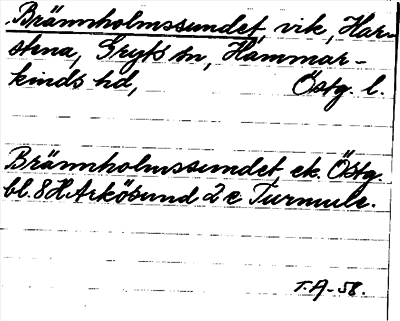 Brännholmssundet, vik, Har-
stena, Gryts sn, Hammar-
kinds hd, Östg. l.
Brännholmssundet, ek. Östg.
bl. 8H Arkösund 2 e Turmule.
T.A-58.